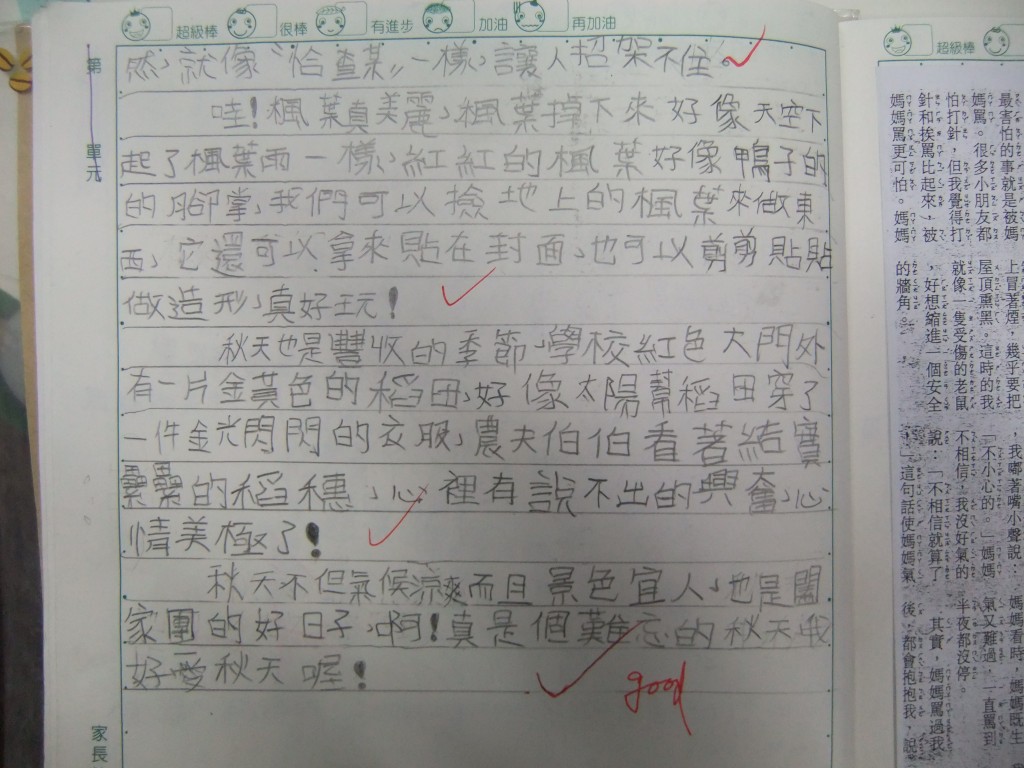 超級棒 很棒 有進步 加油 再加油
第
單元
家長
然，就像“恰查某”一樣，讓人招架不住。
哇！楓葉真美麗，楓葉掉下來好像天空下
起了楓葉雨一樣，紅紅的楓葉好像鴨子的
的腳掌，我們可以撿地上的楓葉來做東
西，它還可以拿來貼在封面，也可以剪剪貼貼
做造形，真好玩！
秋天也是豐收的季節，學校紅色大門外
有一片金黃色的稻田，好像太陽幫稻田穿了
一件金光閃閃的衣服，農夫伯伯看著結實
纍纍的稻穗，心裡有說不出的興奮，心
情美極了！
秋天不但氣候涼爽而且景色宜人，也是闔
家團的好日子，啊！真是個難忘的秋天我
好愛秋天喔！
good
超級棒
最害怕的事就是被媽
媽罵。很多小朋友都
怕打針，但我覺得打
針和挨罵比起來，被
媽媽罵更可怕。媽媽
上冒著煙，幾乎要把
屋頂熏黑，這時的我
就像一隻受傷的老鼠
，好想縮進一個安全
的牆角，
，我嘟著嘴小聲說：
「不小心的。」媽媽
不相信，我沒好氣的
說：「不相信就算了
！」這句話使媽媽氣
媽媽看時，媽媽既生
氣又難過，一直罵到
半夜都沒停。
其實，媽媽罵過我
後，都會抱抱我，說